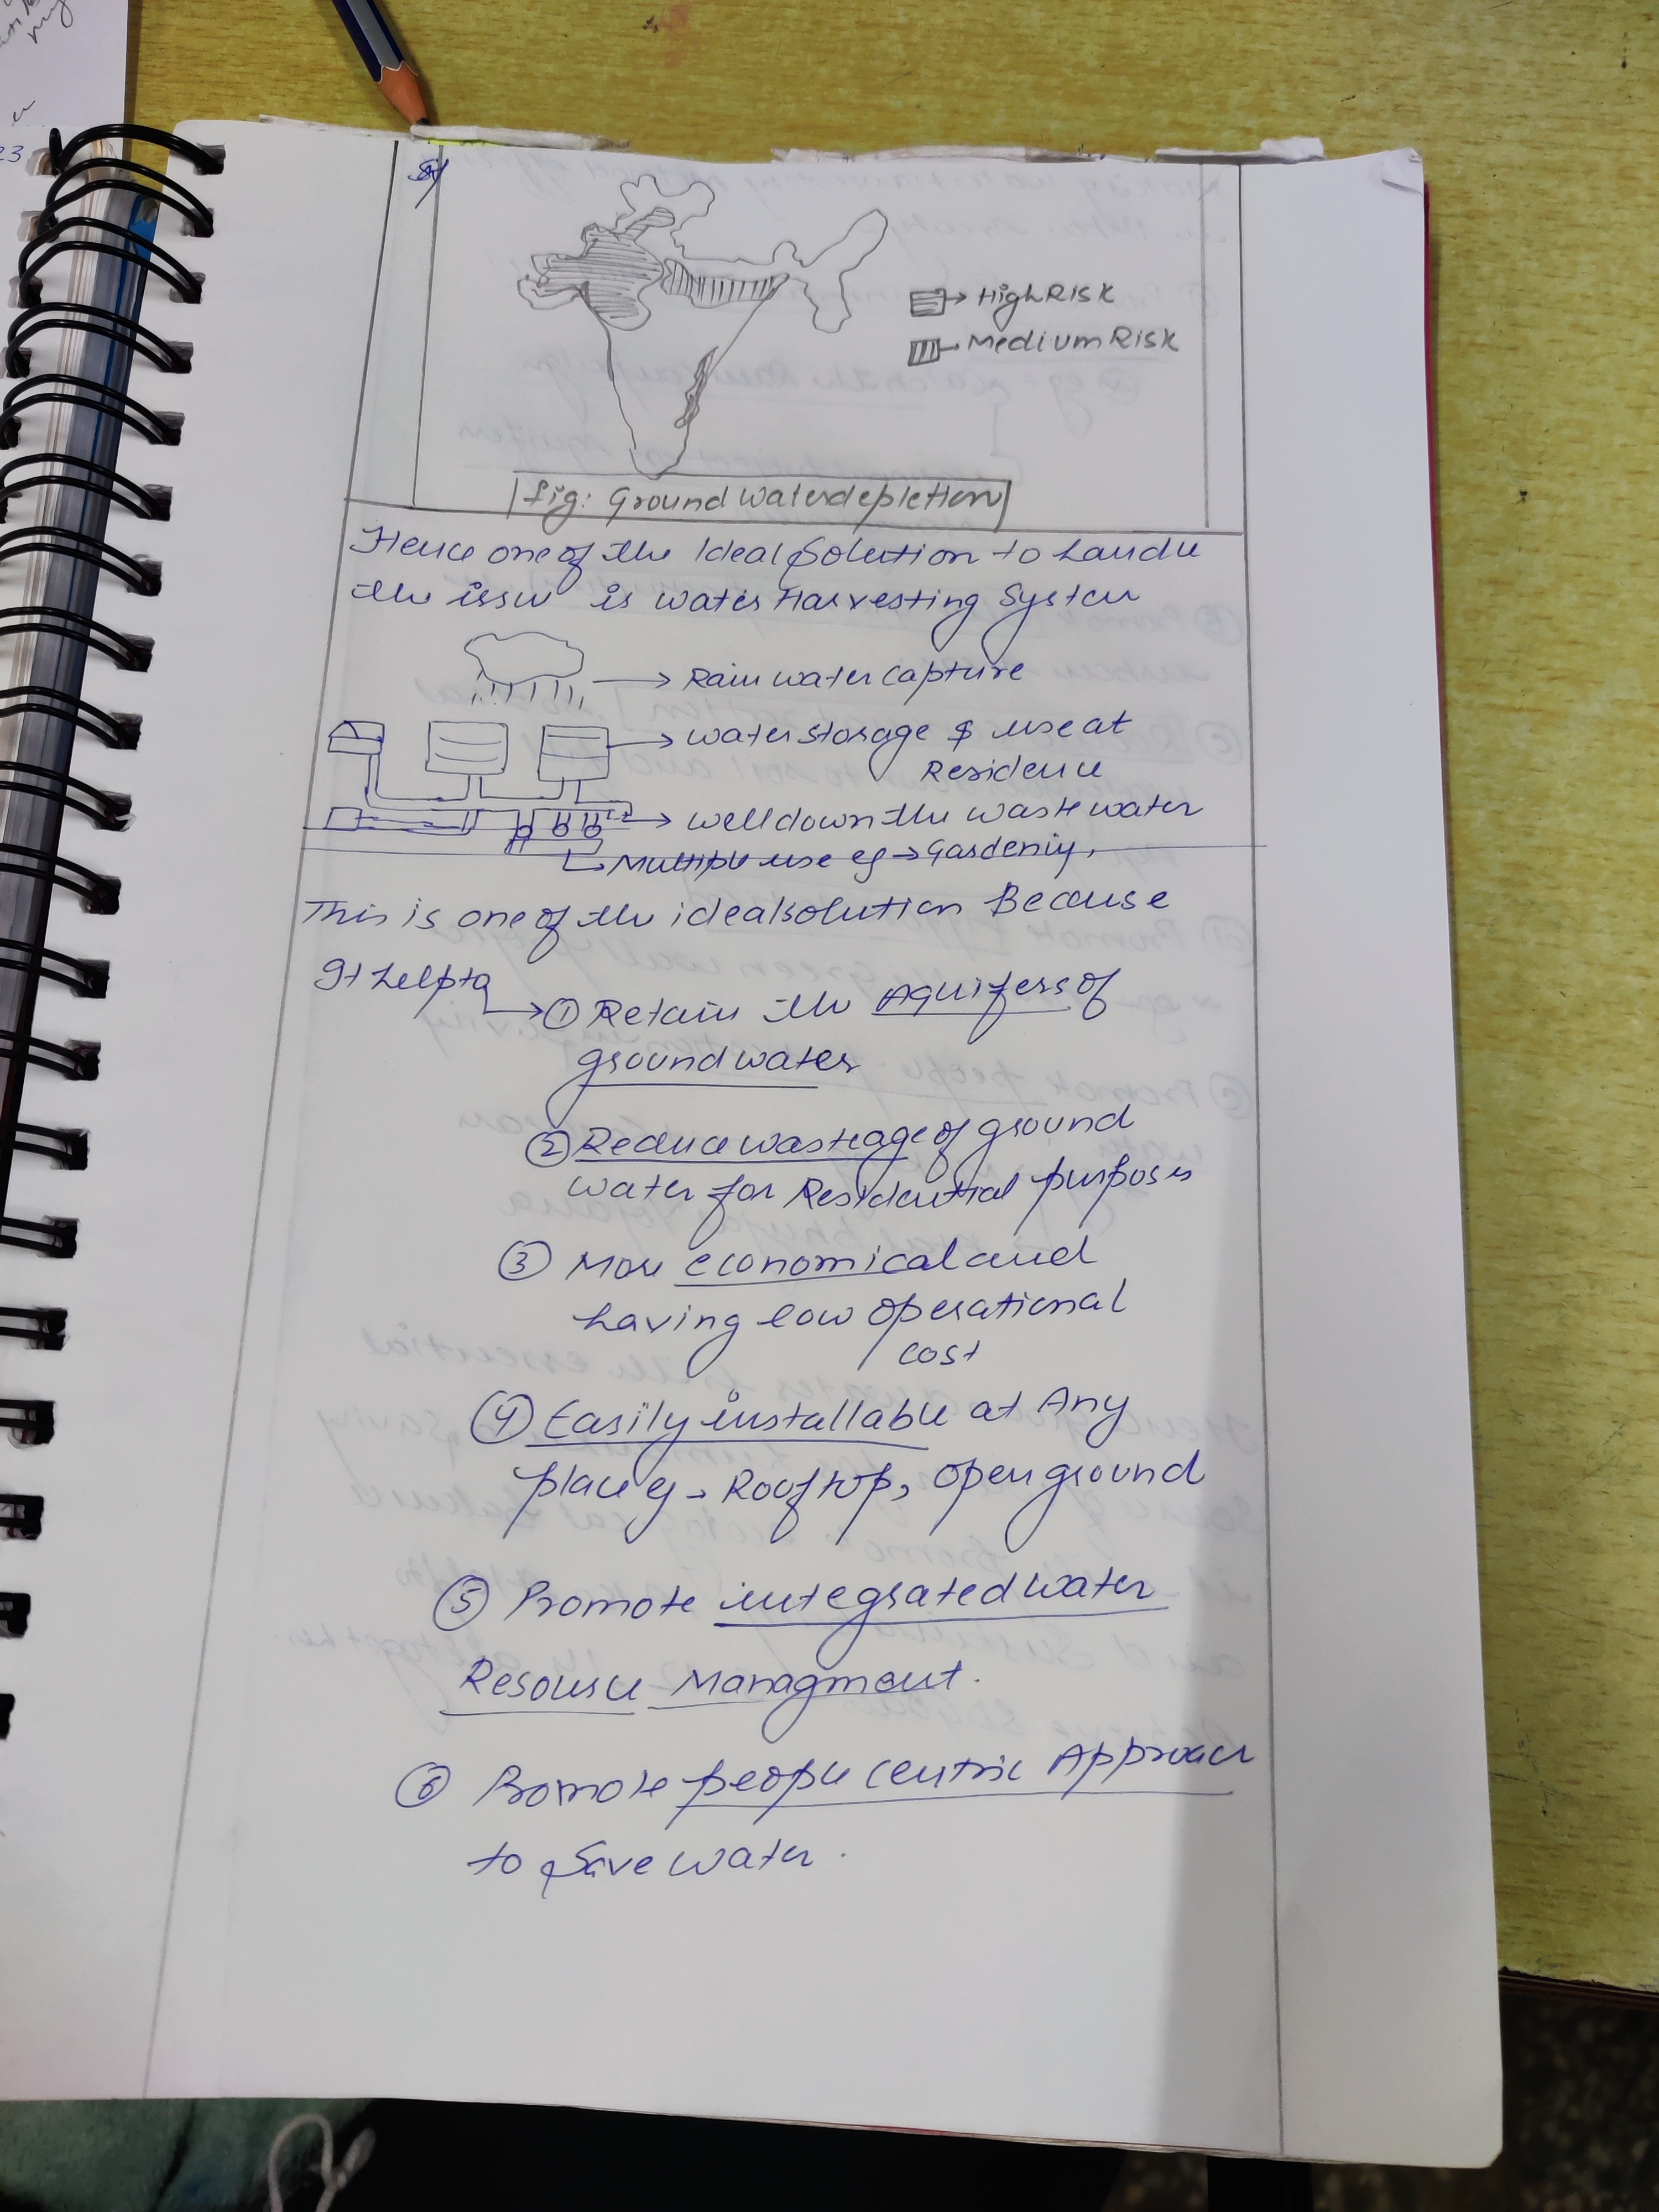 High Risk
Medium Risk
fig: Ground water depletion
Hence one of the Ideal Solution to handle
the issue is water Harvesting System
Rain water capture
water storage & use at
Residence
well down the waste water
Multiple use eg → Gardening,
This is one of the ideal solution Because
It help to
① Retain the Aquifers of
ground water
② Reduce wasteage of ground
water for Residential purposes
③ More economical and
having low operational
cost
④ Easily installable at Any
place eg → Rooftop, open ground
⑤ Promote integrated water
Resource Managment.
⑥ Promote people centric Approach
to Save water.
23